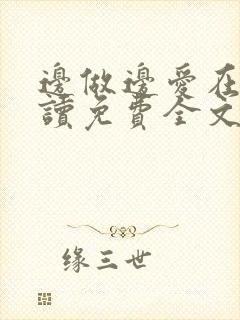 邊做邊愛在
讀免費全文
缘三世